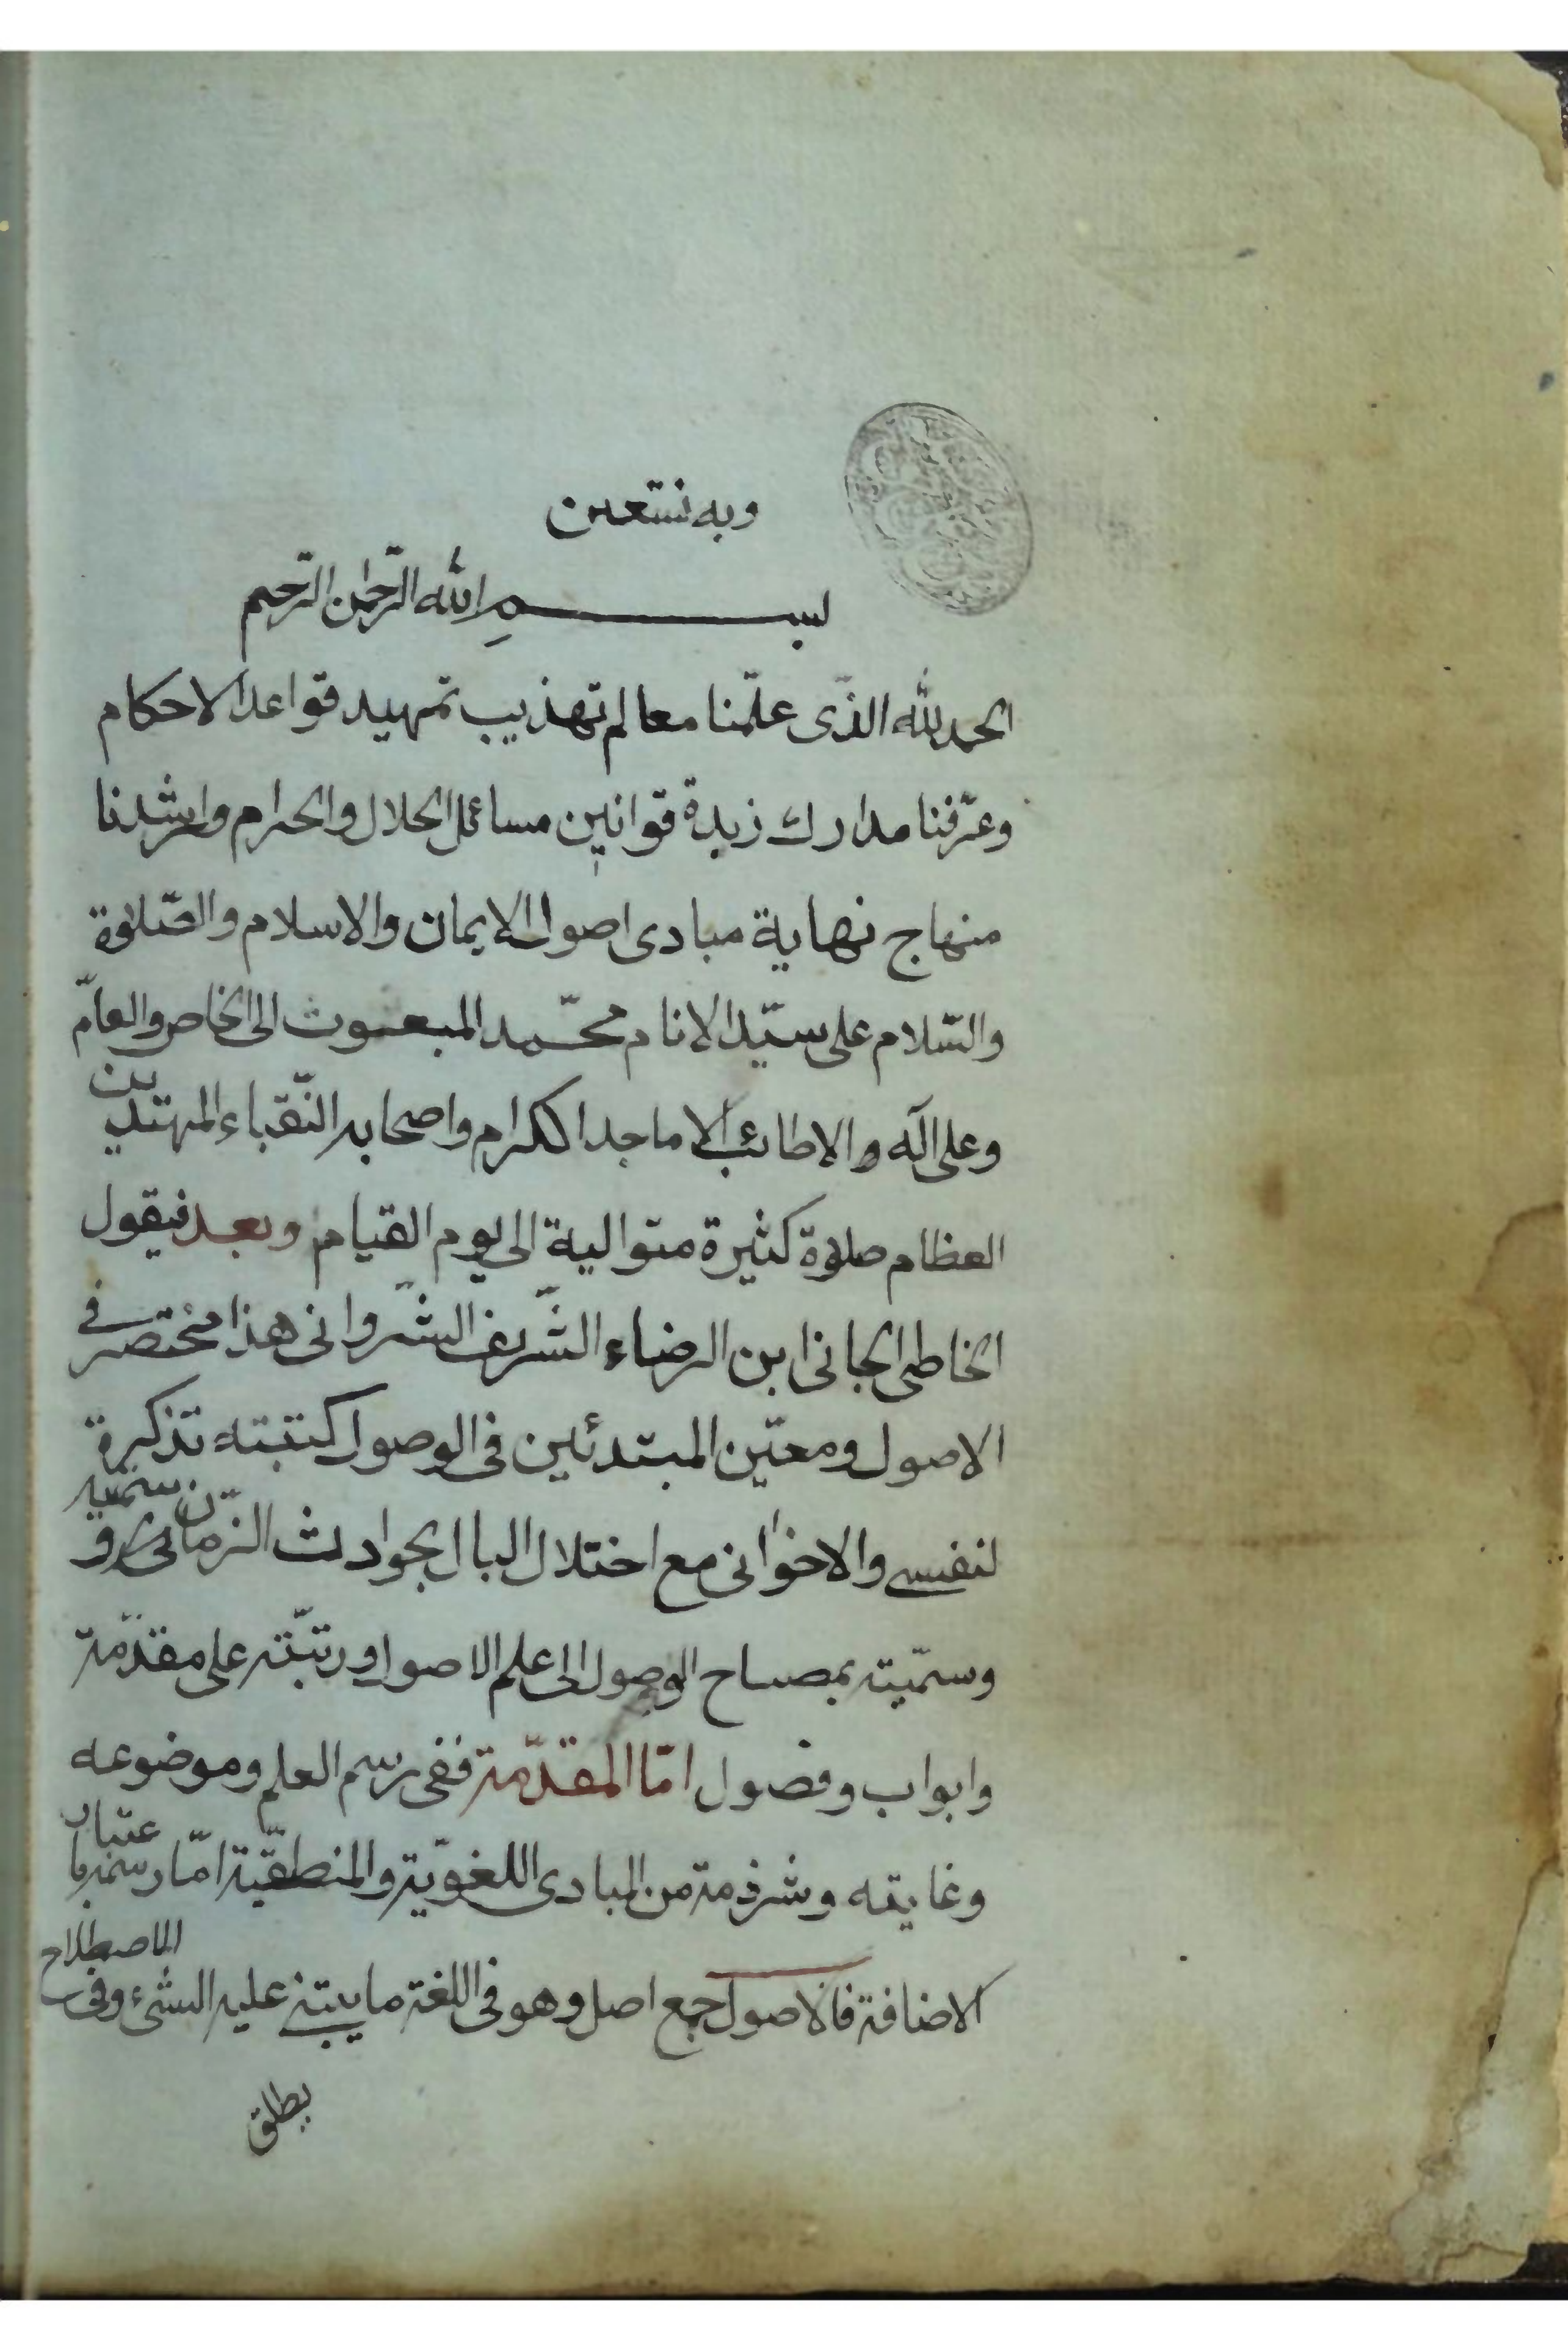 وبه نستعين
بسم الله الرّحمٰن الرّحيم
الحمد لله الذّى علّمنا معالم تهذيب تمهيد قواعد الاحكام
وعرّفنا مدارك زبدة قوانين مسائل الحلال والحرام وارشدنا
منهاج نهاية مبادى اصول الايمان والاسلام والصّلوة
والسّلام على سيّد الانام محمّد المبعوث الى الخاص والعامّ
وعلى آله والاطائب الاماجد الكرام واصحابه النّقباء المهتدين
العظام صلوة كثيرة متوالية الى يوم القيام وبعد فيقول
الخاطى الجانى ابن الرضاء الشّريف الشّروانى هذا مختصر فى
الاصول ومعيّن المبتدئين فى الوصول كتبته تذكرة
لنفسى والاخوانى مع اختلال البال بحوادث الزّمان
وسمّيته بمصباح الوصول الى علم الاصول ورتّبته على مقدّمة
وابواب وفصول امّا المقدّمة ففى رسم العلم وموضوعه
وغايته وشرذمة من المبادى اللغويّة والمنطقيّة امّا رسمه باعتبار
الاضافة فالاصول جمع اصل وهو فى اللغة ما يبتنى عليه الشىء وفى الاصطلاح
يطلق